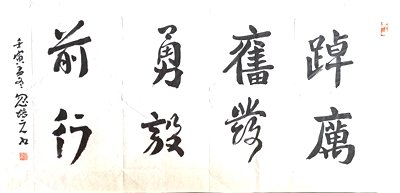 踔厲
奮發
勇毅
前行
壬寅孟冬